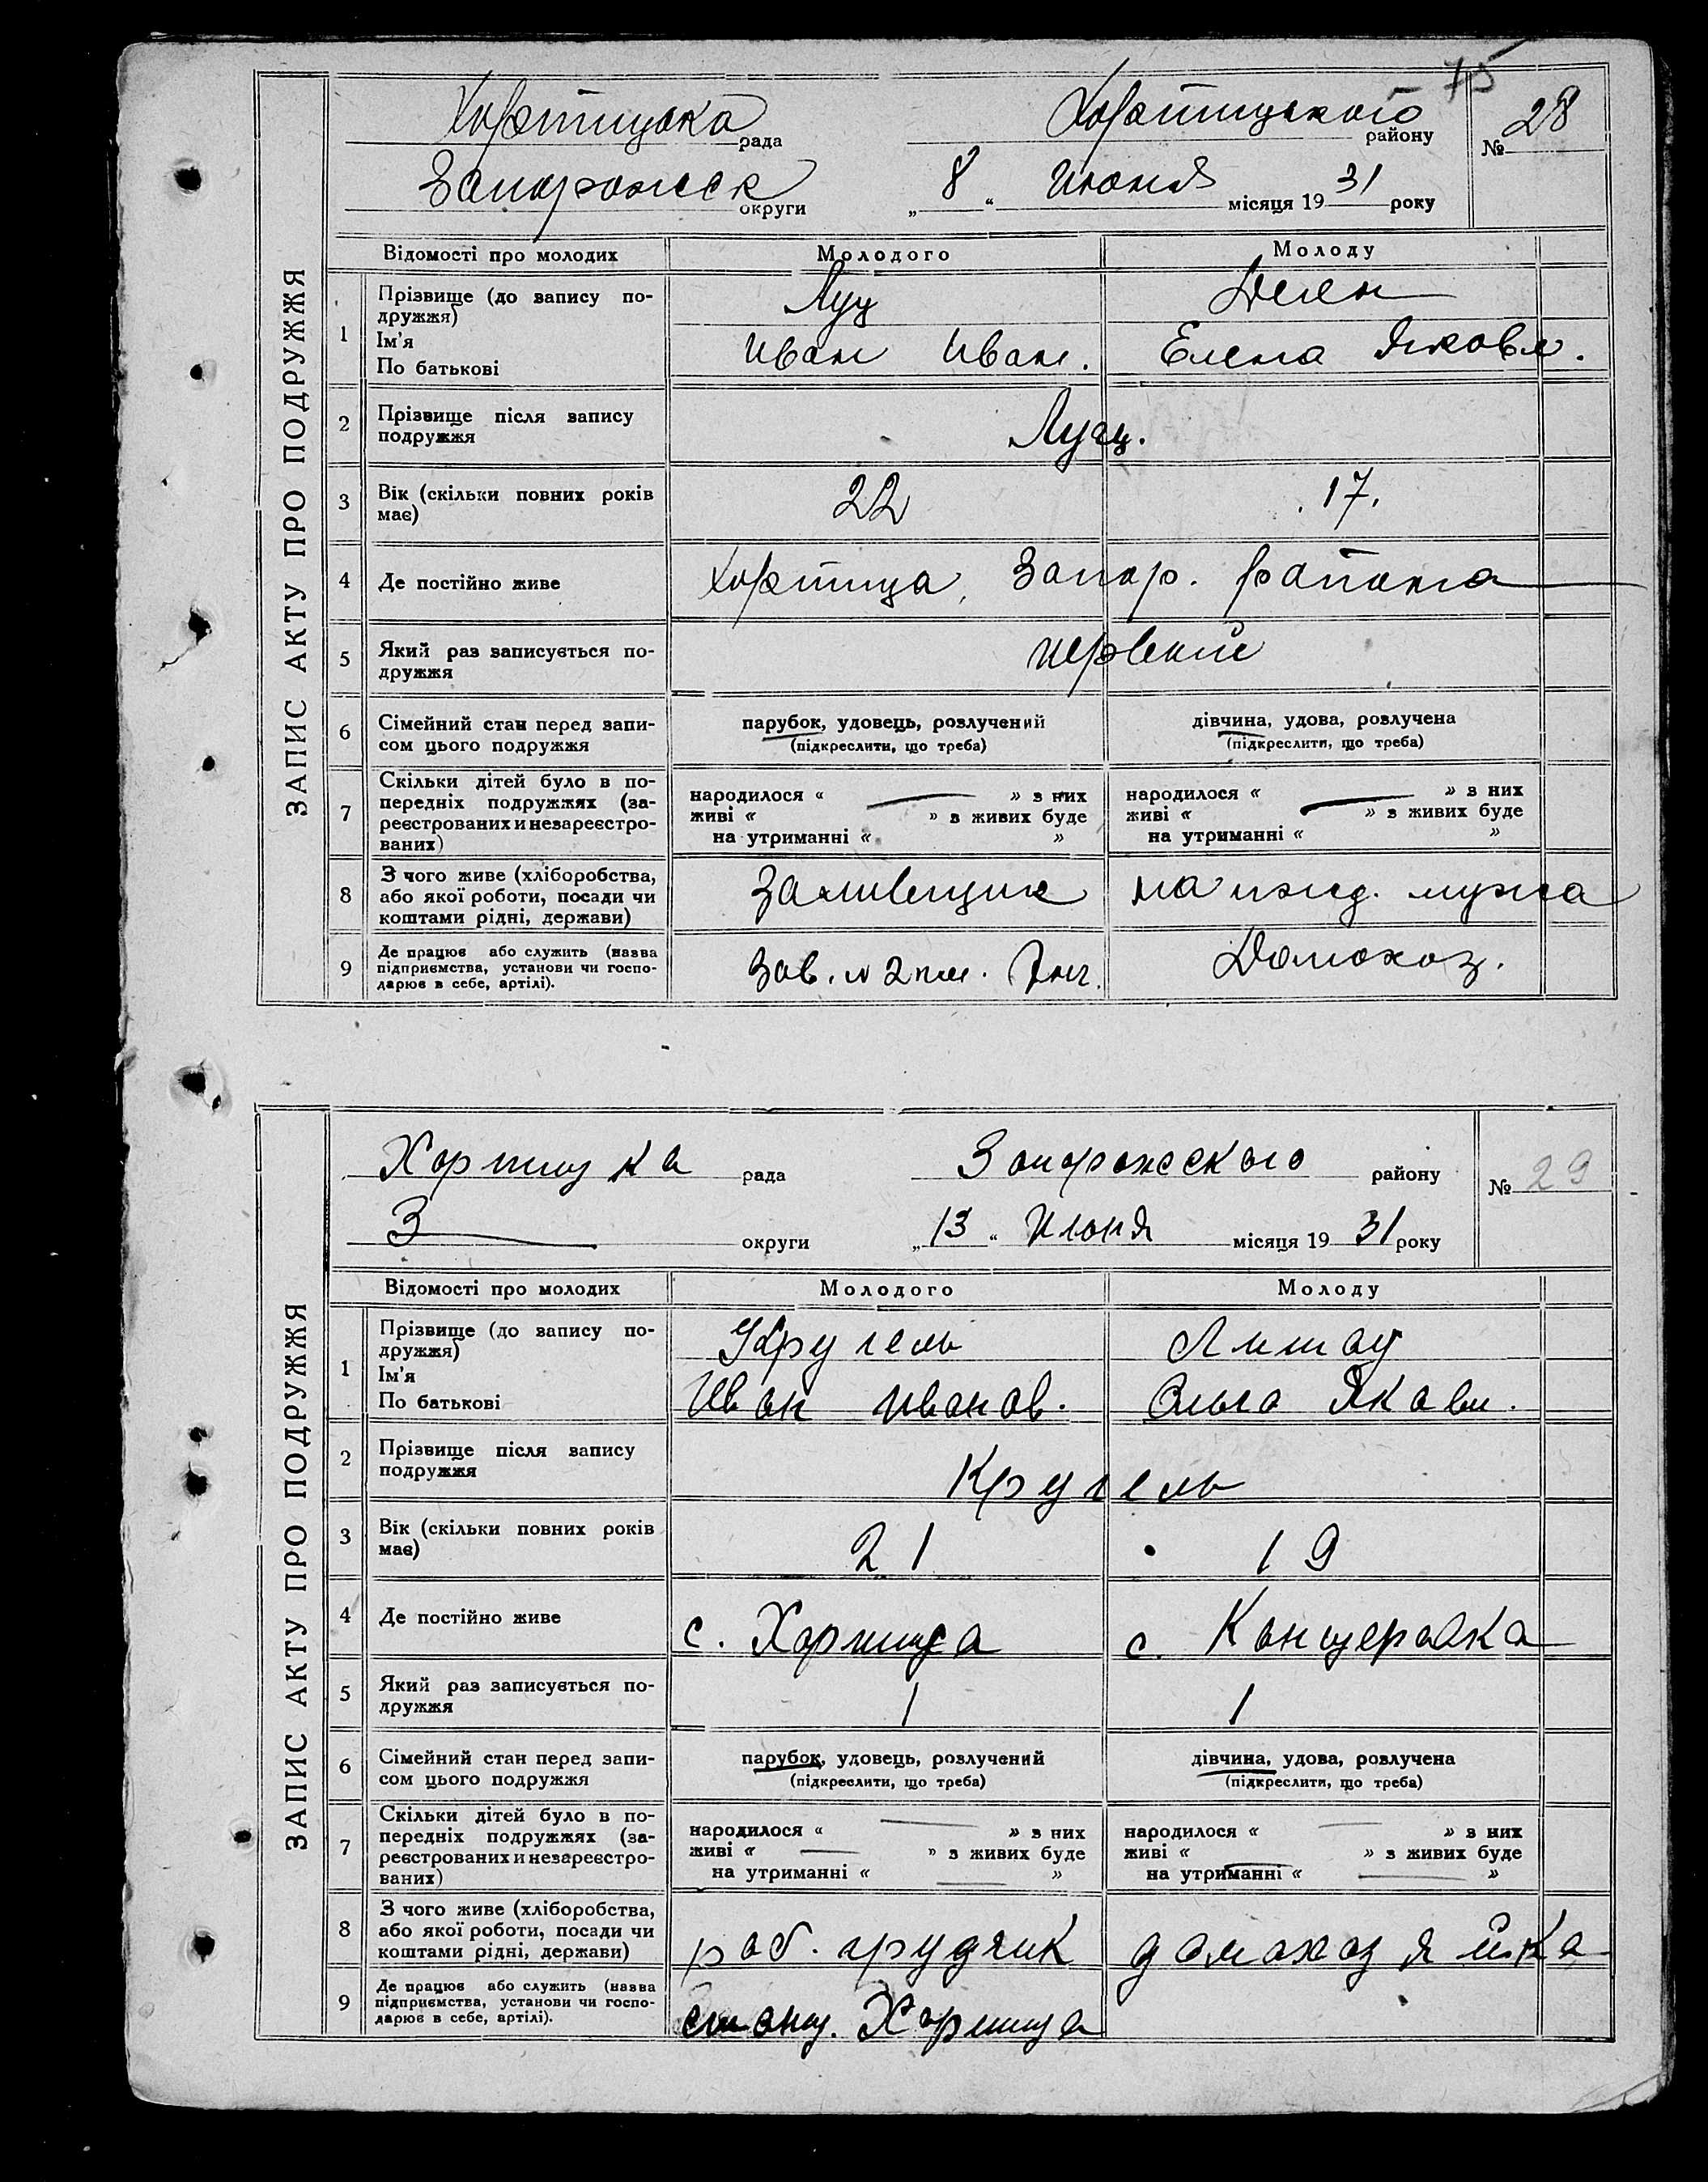 75
Хортицька рада Хортицького району № 28
Запорожск округи „ 8 “ Июня місяця 19 31 року
ЗАПИС АКТУ ПРО ПОДРУЖЖЯ
Відомості про молодих Молодого Молоду
1 Прізвище (до запису по-
дружжя) Луц
Ім'я Иван Иван. Елена Яковл.
По батькові
2 Прізвище після запису
подружжя
3 Вік (скільки повних років
має) 22 17.
4 Де постійно живе Хортица, Запор. района
5 Який раз записується по-
дружжя первый
6 Сімейний стан перед запи-
сом цього подружжя
парубок, удовець, розлучений дівчина, удова, розлучена
(підкреслити, що треба) (підкреслити, що треба)
7 Скільки дітей було в по-
передніх подружжях (за-
реєстрованих и незареєстро-
ваних)
народилося « — » з них народилося « — » з них
живі « » з живих буде живі « » з живих буде
на утриманні « » на утриманні « »
8 З чого живе (хліборобства,
або якої роботи, посади чи
коштами рідні, держави)
Заливщик на ижд. мужа
9 Де працює або служить (назва
підприємства, установи чи госпо-
дарює в себе, артілі).
Зав. N 2 Домохоз.
Хортицка рада Запорожского району № 29
З— округи „ 13 “ Июня місяця 19 31 року
ЗАПИС АКТУ ПРО ПОДРУЖЖЯ
Відомості про молодих Молодого Молоду
1 Прізвище (до запису по-
дружжя) Кругель
Ім'я Иван Иванов. Ольга Якавл.
По батькові
2 Прізвище після запису
подружжя Кругель
3 Вік (скільки повних років
має) 21 19
4 Де постійно живе с. Хортица с. Канцеравка
5 Який раз записується по-
дружжя 1 1
6 Сімейний стан перед запи-
сом цього подружжя
парубок, удовець, розлучений дівчина, удова, розлучена
(підкреслити, що треба) (підкреслити, що треба)
7 Скільки дітей було в по-
передніх подружжях (за-
реєстрованих и незареєстро-
ваних)
народилося « — » з них народилося « — » з них
живі « — » з живих буде живі « — » з живих буде
на утриманні « — » на утриманні « — »
8 З чого живе (хліборобства,
або якої роботи, посади чи
коштами рідні, держави)
раб. домахозяйка
9 Де працює або служить (назва
підприємства, установи чи госпо-
дарює в себе, артілі).
станц. Хортица